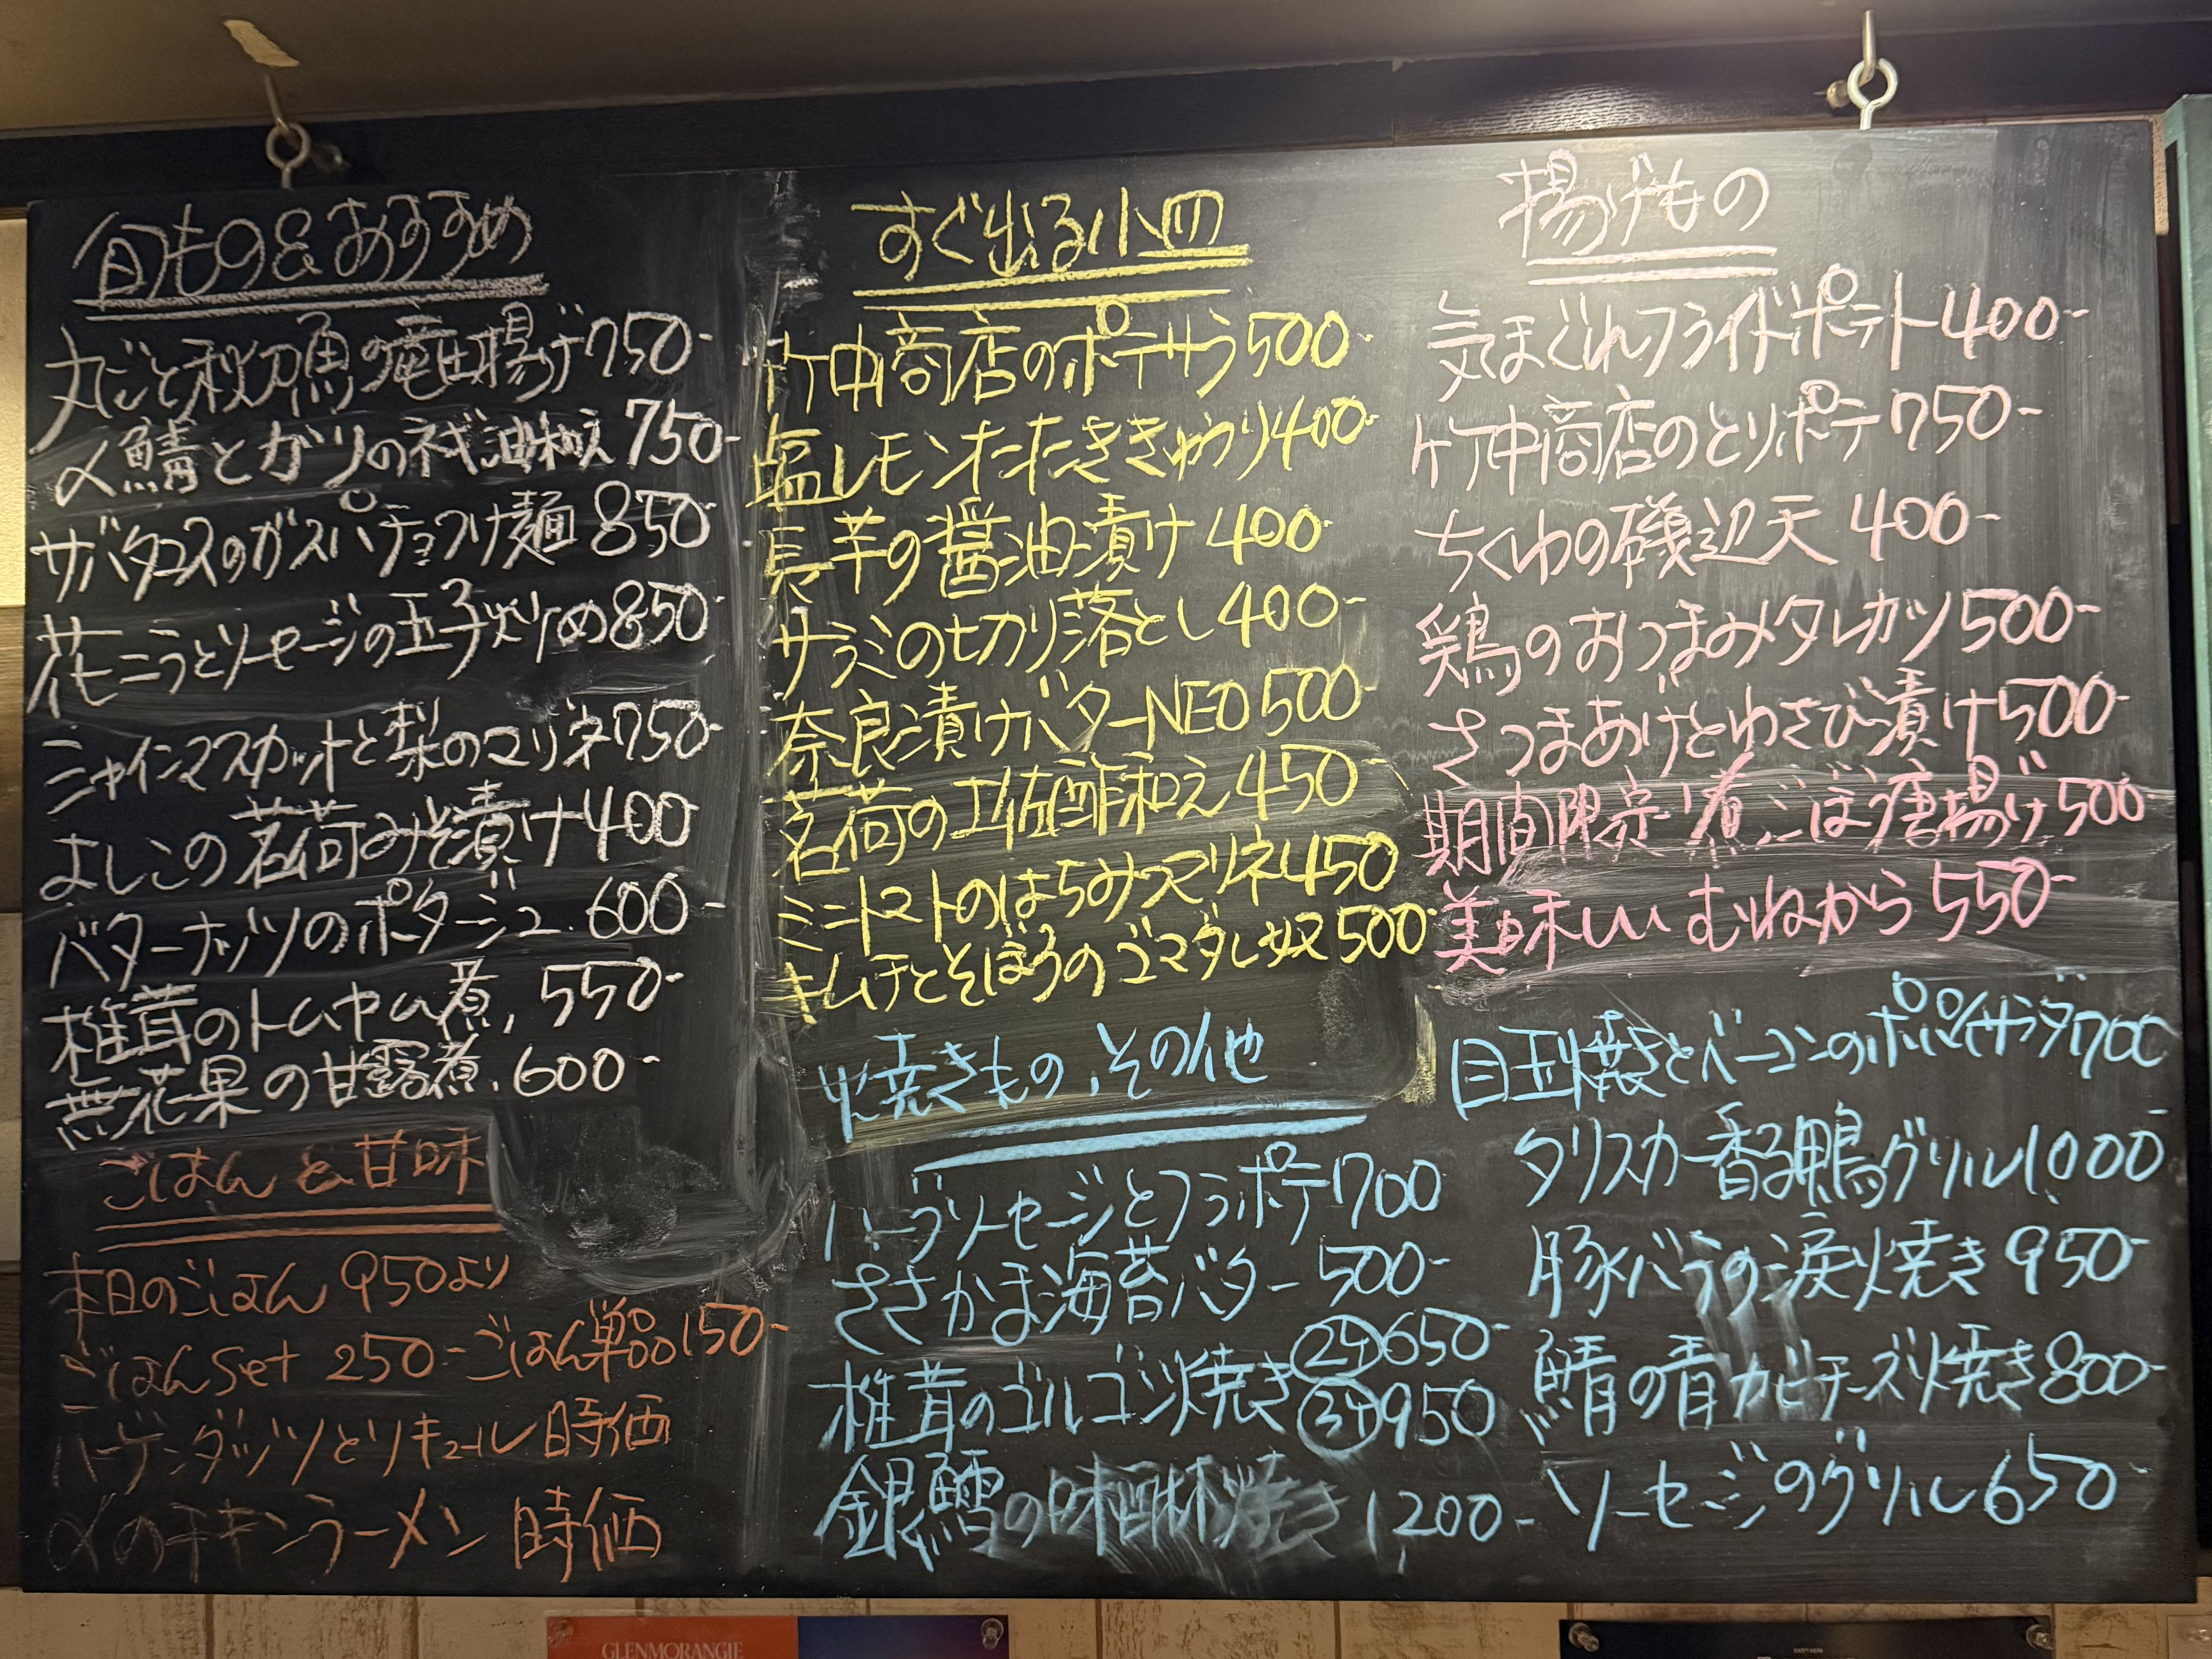 旬もの&おすすめ
丸ごと秋刀魚の竜田揚げ750-
〆鯖とガリのネギ油和え750-
サバタコスのガスパチョつけ麺 850-
花ニラとソーセージの玉子炒め850-
シャインマスカットと梨のマリネ750-
よしこの茗荷みそ漬け400
バターナッツのポタージュ.600-
椎茸のトムヤム煮, 550-
無花果の甘露煮.600-
ごはんと甘味
本日のごはん 950より
ごはんset 250-ごはん単品150-
ハーゲンダッツとリキュール 時価
〆のチキンラーメン 時価
すぐ出る小皿
竹中商店のポテサラ500-
塩レモンたたききゅうり400-
長芋の醤油漬け 400-
サラミの切り落とし400-
奈良漬けバターNEO 500-
茗荷の土佐酢和え450
ミニトマトのはちみつマリネ450
キムチとそぼろのゴマダレ奴500-
焼きもの、その他
ハーブソーセージとフラポテ700
ささかま海苔バター 500-
椎茸のゴルゴンゾ焼き ②④650-
③④950
銀鱈の味醂焼き 1200-
揚げもの
気まぐれフライドポテト400-
竹中商店のとりポテ750-
ちくわの磯辺天 400-
鶏のおつまみタレカツ500-
さつまあげとわさび漬け500-
期間限定!煮ごぼう唐揚げ500-
美味しいむねから550-
目玉焼きとベーコンのポパイサラダ700
タリスカー香る鴨グリル1000-
豚バラの涙焼き950-
鯖の青カビチーズ焼き800-
ソーセージのグリル650-
GLENMORANGIE